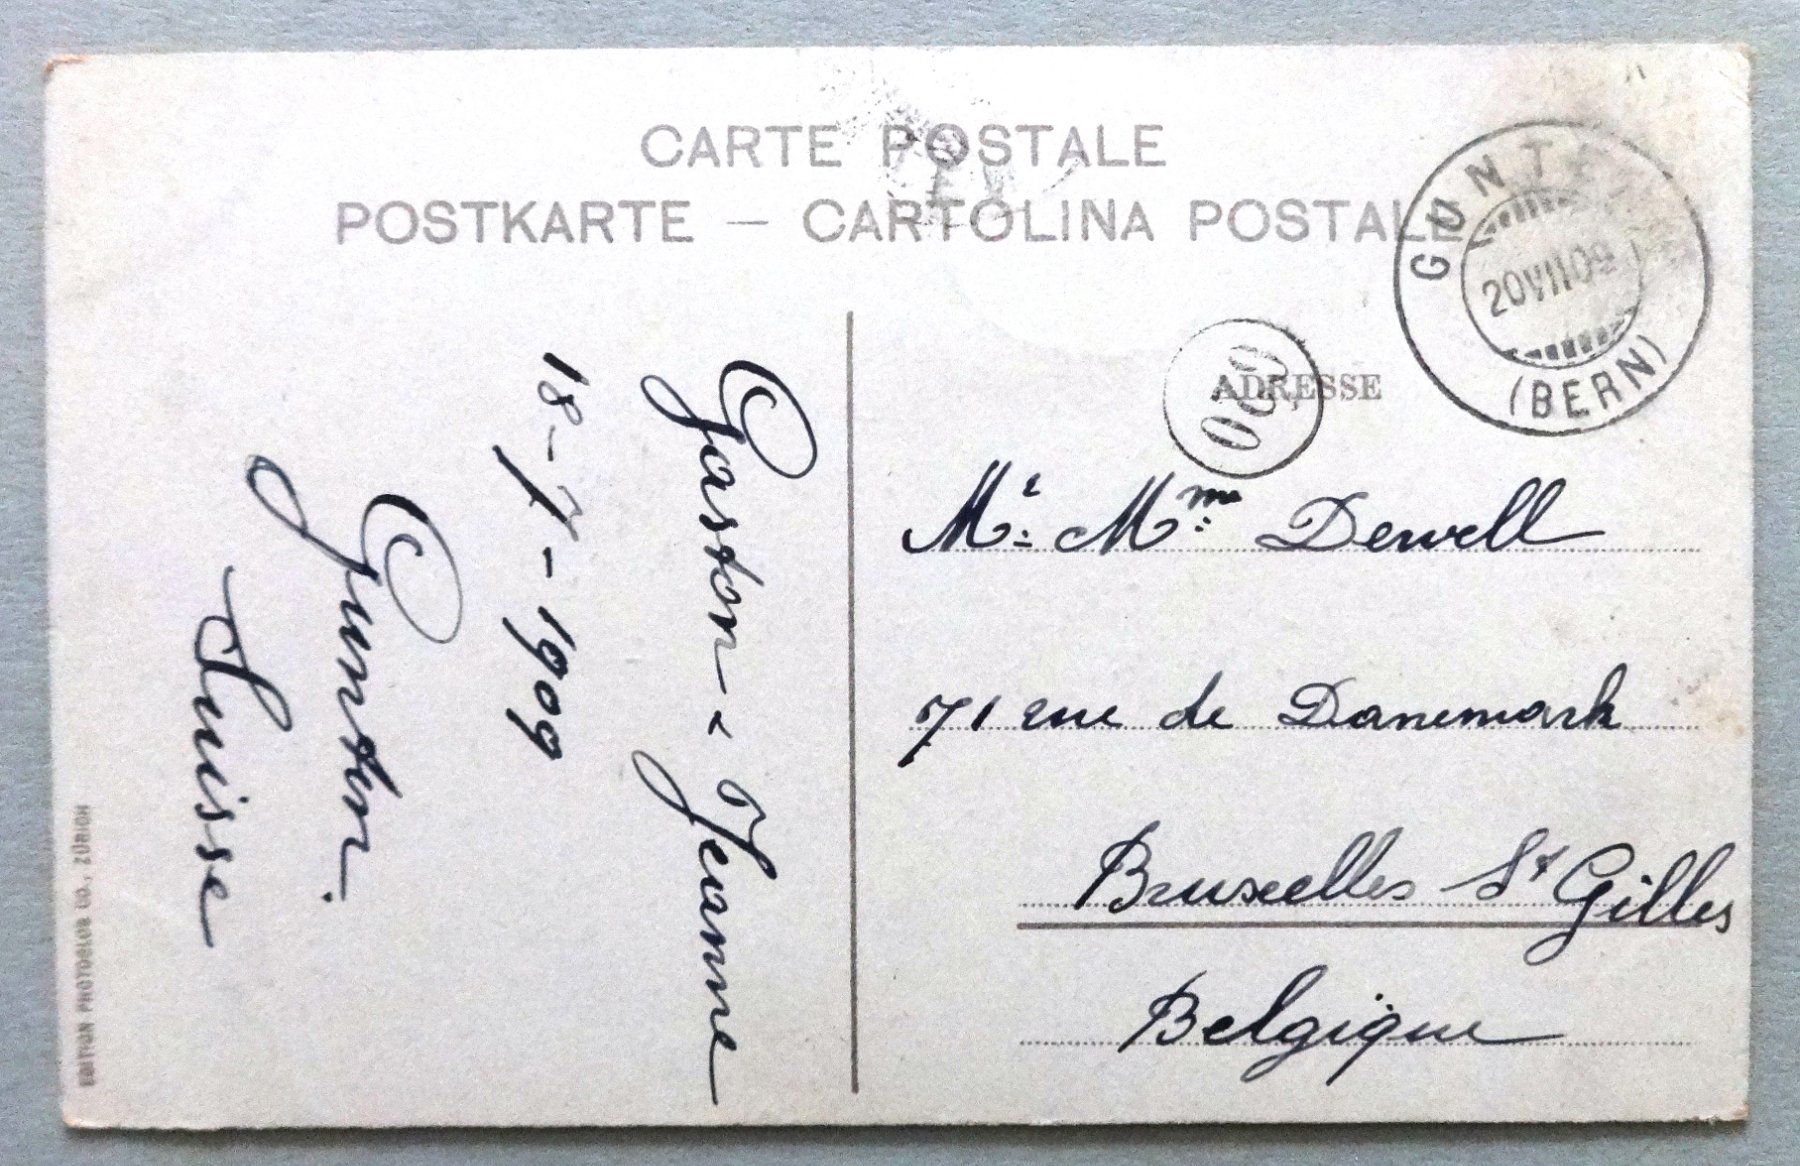 CARTE POSTALE
POSTKARTE — CARTOLINA POSTALE
GUNTEN
20 VII 09
(BERN)
ADRESSE
Gaston & Jeanne
18-7-1909
Gunten.
Suisse
Mr & Mme Dewell
71 rue de Danemark
Bruxelles St Gilles
Belgique
EDITION PHOTOGLOB CO., ZÜRICH